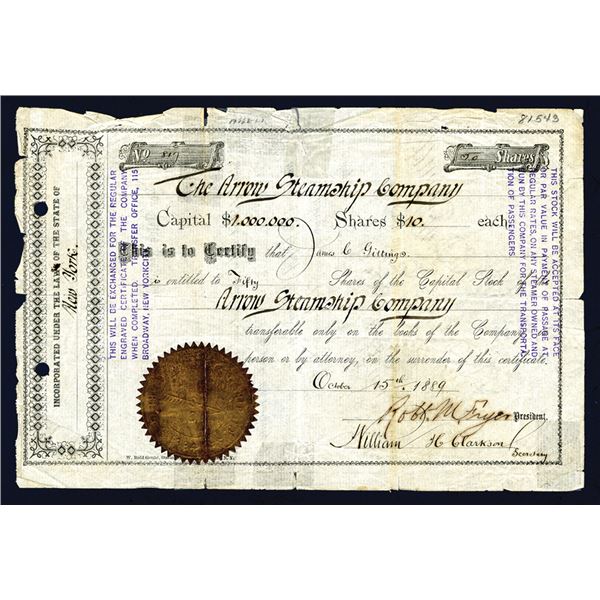 81543
No
50 Shares
The Arrow Steamship Company
Capital $1,000,000. Shares $10. each
This is to Certify that James C. Gittings.
is entitled to Fifty Shares of the Capital Stock
Arrow Steamship Company
transferable only on the books of the Company
person or by attorney, on the surrender of this certificate.
October 15th 1889
Robt. M. Fryer President.
William H Clarkson
Secretary
W. Reid Gould
N. Y.
INCORPORATED UNDER THE LAWS OF THE STATE OF
New York.
THIS WILL BE EXCHANGED FOR THE REGULAR
ENGRAVED CERTIFICATE OF THE COMPANY
WHEN COMPLETED. TRANSFER OFFICE, 115
BROADWAY, NEW YORK CITY
THIS STOCK WILL BE ACCEPTED AT ITS FACE
OR PAR VALUE IN PAYMENT OF PASSAGE AT
REGULAR RATES, ON ANY STEAMER OWNED AND
RUN BY THIS COMPANY FOR THE TRANSPORTA
TION OF PASSENGERS